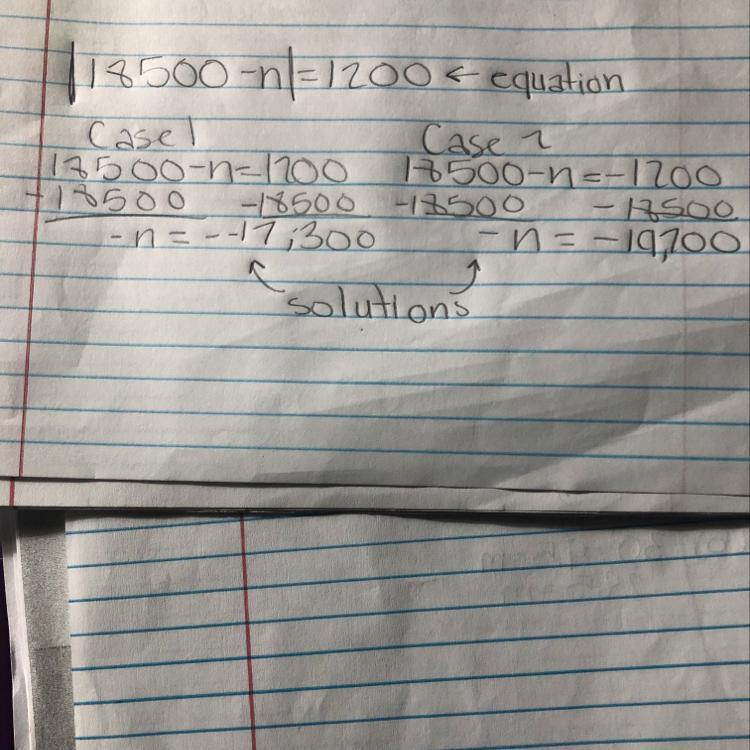 |18500-n|=1200 ← equation
Case 1
18500-n=1200
-18500 -18500
-n = --17,300
Case 2
18500-n=-1200
-18500 -18500
-n = -19,700
solutions